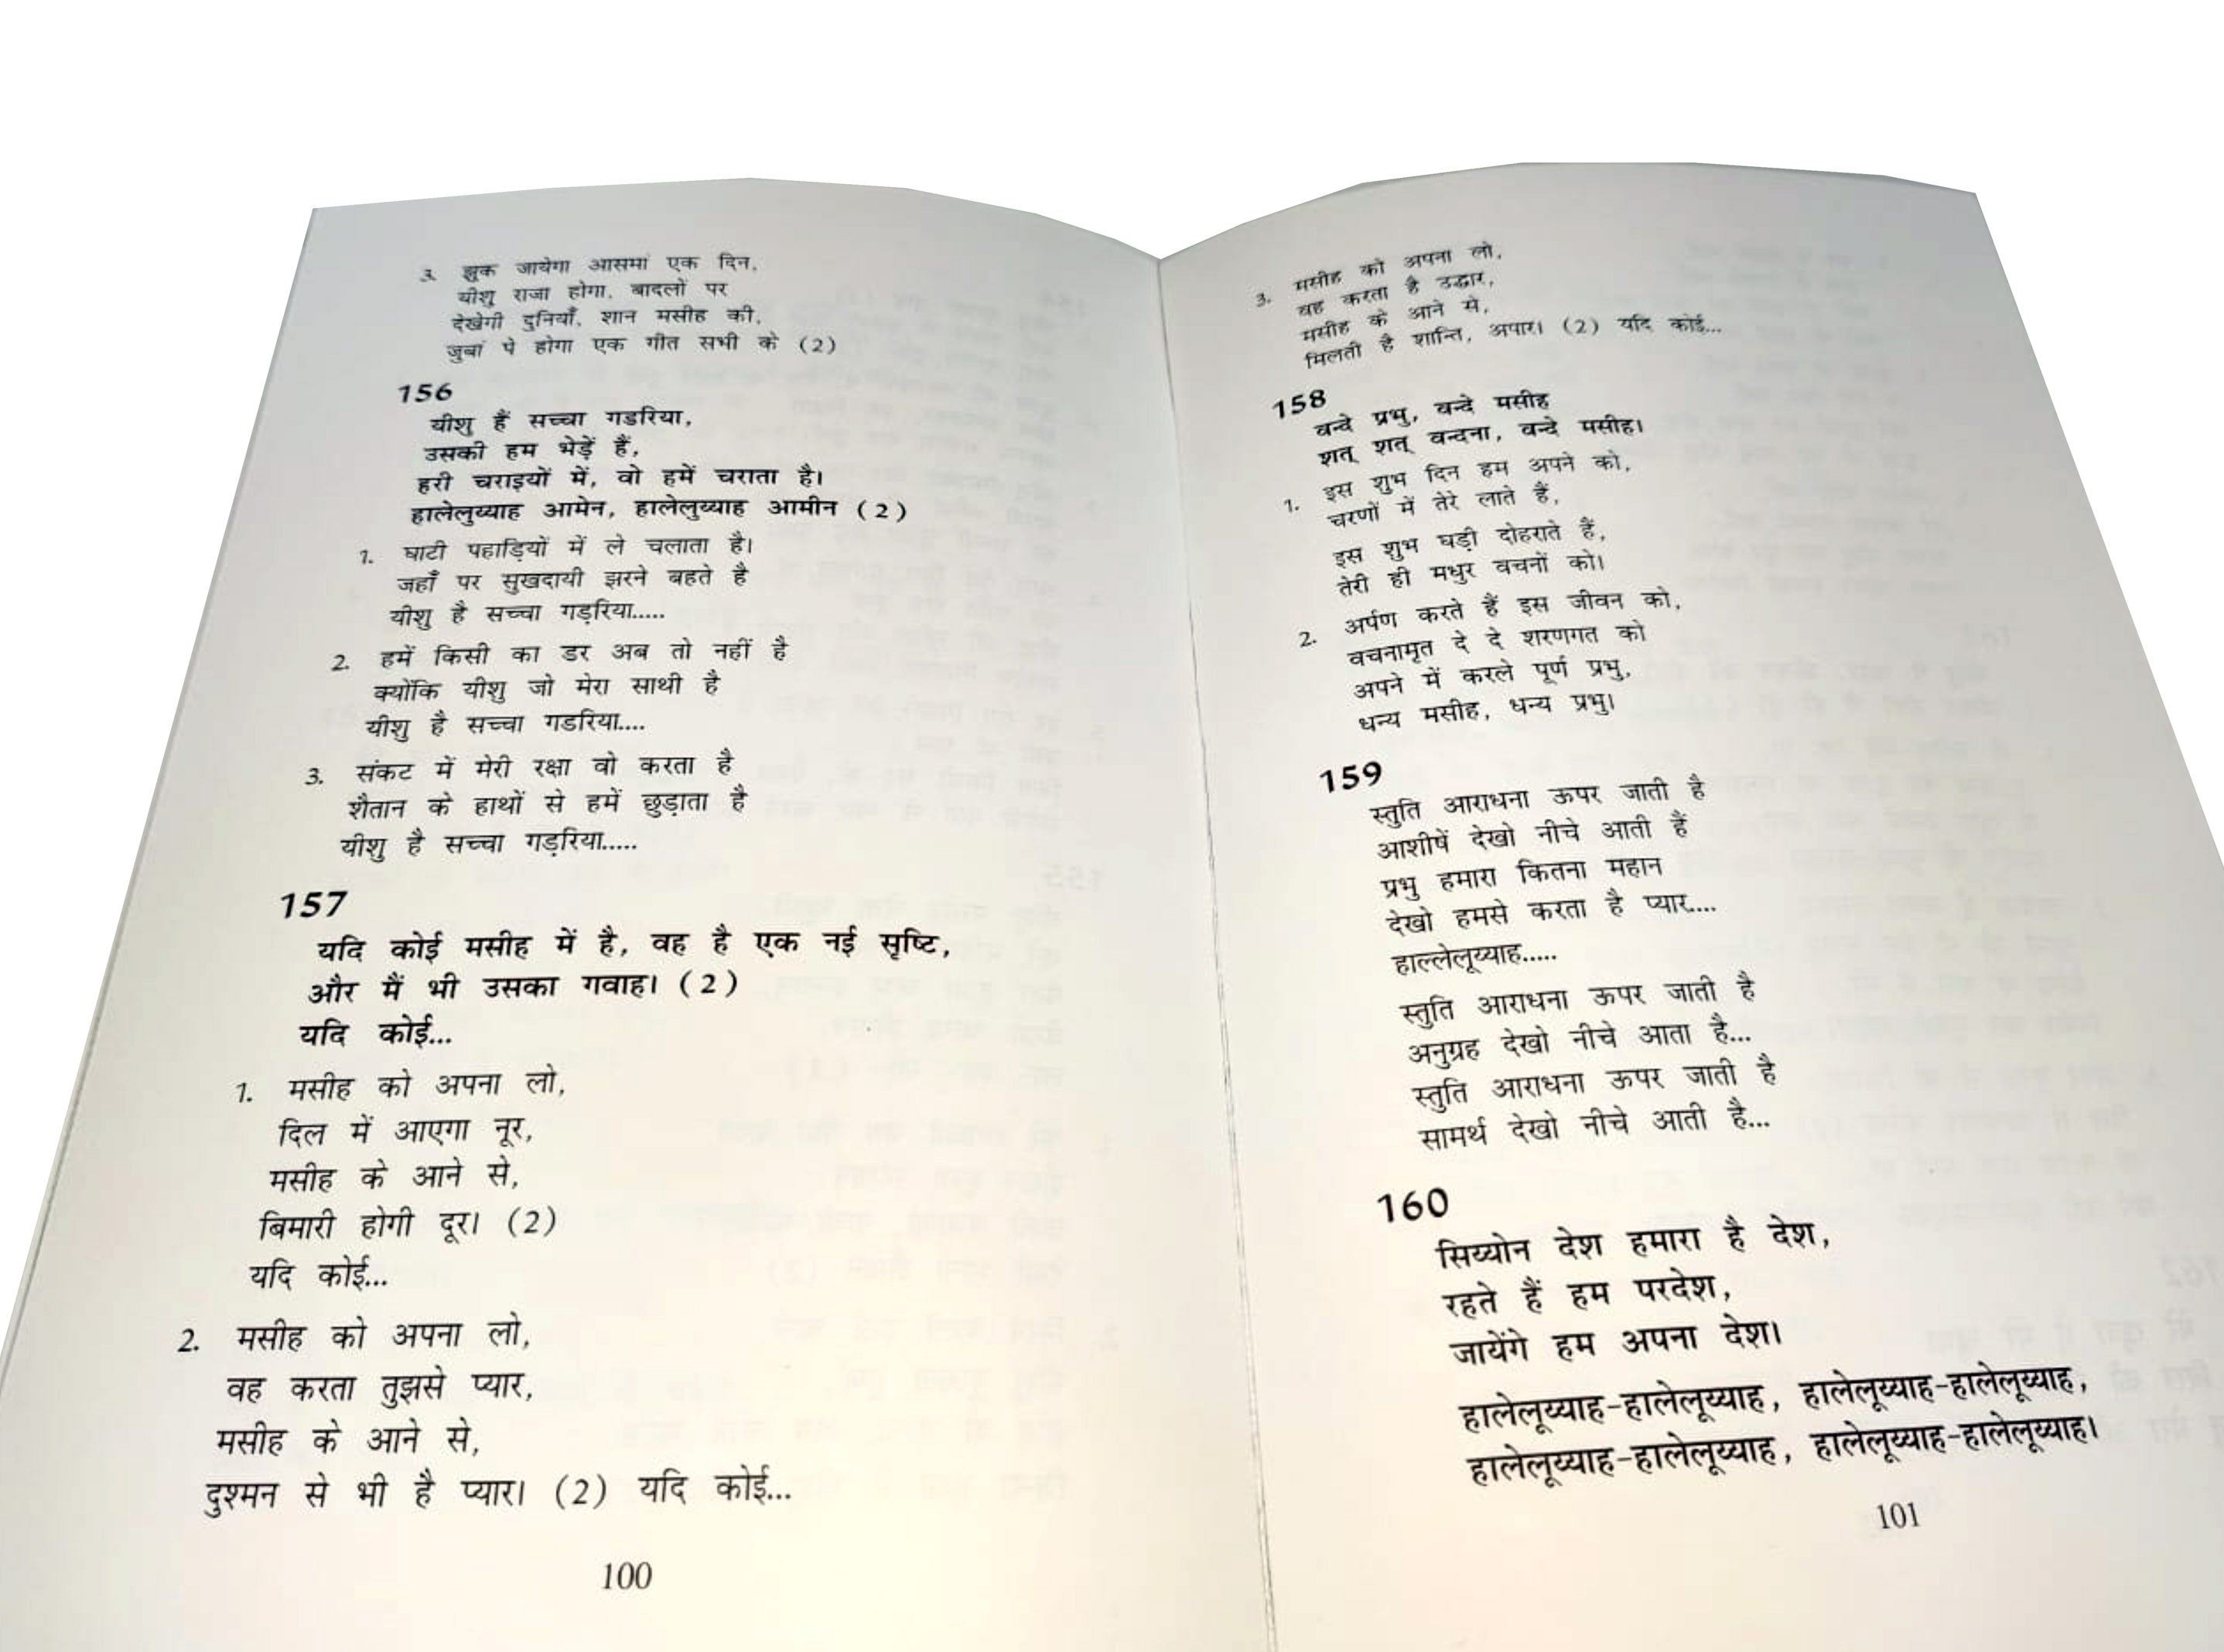 3. झुक जायेगा आसमां एक दिन,
यीशु राजा होगा, बादलों पर
देखेगी दुनियाँ, शान मसीह की,
जुबां पे होगा एक गीत सभी के (2)
156
यीशु हैं सच्चा गडरिया,
उसकी हम भेड़ें हैं,
हरी चराइयों में, वो हमें चराता है।
हालेलुय्याह आमेन, हालेलुय्याह आमीन (2)
1. घाटी पहाड़ियों में ले चलाता है।
जहाँ पर सुखदायी झरने बहते है
यीशु है सच्चा गड़रिया.....
2. हमें किसी का डर अब तो नहीं है
क्योंकि यीशु जो मेरा साथी है
यीशु है सच्चा गडरिया....
3. संकट में मेरी रक्षा वो करता है
शैतान के हाथों से हमें छुड़ाता है
यीशु है सच्चा गड़रिया.....
157
यदि कोई मसीह में है, वह है एक नई सृष्टि,
और मैं भी उसका गवाह। (2)
यदि कोई...
1. मसीह को अपना लो,
दिल में आएगा नूर,
मसीह के आने से,
बिमारी होगी दूर। (2)
यदि कोई...
2. मसीह को अपना लो,
वह करता तुझसे प्यार,
मसीह के आने से,
दुश्मन से भी है प्यार। (2) यदि कोई...
100
3. मसीह को अपना लो,
वह करता है उद्धार,
मसीह के आने से,
मिलती है शान्ति, अपार। (2) यदि कोई...
158
वन्दे प्रभु, वन्दे मसीह
शत् शत् वन्दना, वन्दे मसीह।
1. इस शुभ दिन हम अपने को,
चरणों में तेरे लाते हैं,
इस शुभ घड़ी दोहराते हैं,
तेरी ही मधुर वचनों को।
2. अर्पण करते हैं इस जीवन को,
वचनामृत दे दे शरणगत को
अपने में करले पूर्ण प्रभु,
धन्य मसीह, धन्य प्रभु।
159
स्तुति आराधना ऊपर जाती है
आशीषें देखो नीचे आती हैं
प्रभु हमारा कितना महान
देखो हमसे करता है प्यार....
हाल्लेलूय्याह.....
स्तुति आराधना ऊपर जाती है
अनुग्रह देखो नीचे आता है...
स्तुति आराधना ऊपर जाती है
सामर्थ देखो नीचे आती है...
160
सिय्योन देश हमारा है देश,
रहते हैं हम परदेश,
जायेंगे हम अपना देश।
हालेलूय्याह-हालेलूय्याह, हालेलूय्याह-हालेलूय्याह,
हालेलूय्याह-हालेलूय्याह, हालेलूय्याह-हालेलूय्याह।
101